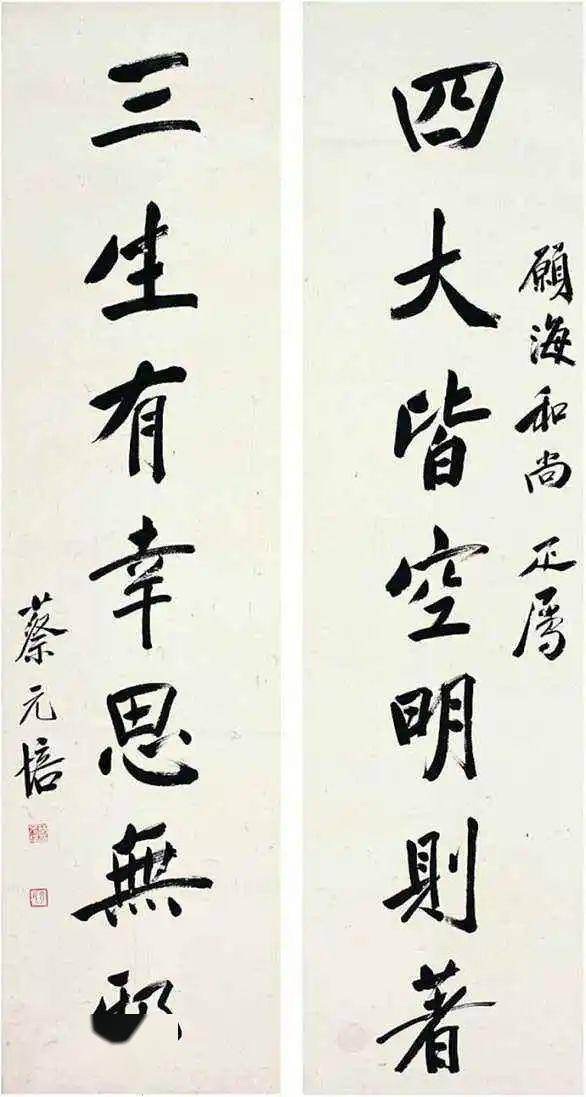 願海和尚 正属
四大皆空明則著
三生有幸思無
蔡元培